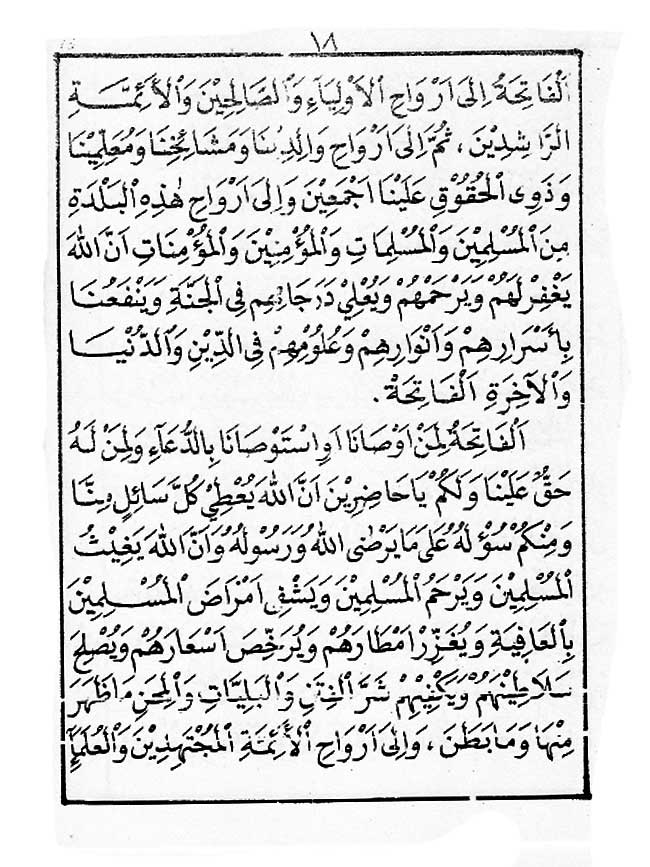 ١٨
اَلْفَاتِحَةُ اِلىَ اَرْوَاحِ الْاَوْلِيَآءِ وَالصَّالِحِيْنَ وَالْأَئِمَّةِ
الرَّاشِدِيْنَ ، ثُمَّ اِلىَ اَرْوَاحِ وَالِدِيْنَا وَمَشَائِخِنَا وَمُعَلِّمِيْنَا
وَذَوِى الْحُقُوْقِ عَلَيْنَا اَجْمَعِيْنَ وَاِلىَ اَرْوَاحِ هٰذِهِ الْبَلْدَةِ
مِنَ الْمُسْلِمِيْنَ وَالْمُسْلِمَاتِ وَالْمُؤْمِنِيْنَ وَالْمُؤْمِنَاتِ اَنَّ اللهَ
يَغْفِرْ لَهُمْ وَيَرْحَمْهُمْ وَيُعْلِيْ دَرَجَاتِهِم فِى الْجَنَّةِ وَيَنْفَعُنَا
بِأَسْرَارِهِمْ وَاَنْوَارِهِمْ وَعُلُوْمِهِمْ فِى الدِّيْنِ وَالدُّنْيَا
وَالْآخِرَةِ اَلْفَاتِحَةْ .
اَلْفَاتِحَةُ لِمَنْ اَوْصَانَا اَوِاسْتَوْصَانَا بِالدُّعَآءِ وَلِمَنْ لَهُ
حَقٌّ عَلَيْنَا وَلَكُمْ يَاحَاضِرِيْنَ اَنَّ اللهَ يُعْطِيْ كُلَّ سَائِلٍ مِنَّا
وَمِنْكُمْ سُؤْلَهُ عَلَى مَا يَرْضٰى اللهُ وَرَسُوْلُهُ وَاَنَّ اللهَ يَغِيْثُ
الْمُسْلِمِيْنَ وَيَرْحَمُ الْمُسْلِمِيْنَ وَيَشْفِى اَمْرَاضَ الْمُسْلِمِيْنَ
بِالْعَافِيَةِ وَيُغَزِّرْ اَمْطَارَهُمْ وَيُرَخِّصَ اَسْعَارَهُمْ وَيُصْلِحَ
سَلَاطِيْنَهُمْ وَيَكْفِيْهِمْ شَرَّ الْفِتَنِ وَالْبَلِيَّاتِ وَالْمِحَنِ مَا ظَهَرَ
مِنْهَا وَمَا بَطَنَ ، وَاِلىَ اَرْوَاحِ الْأَئِمَّةِ الْمُجْتَهِدِيْنَ وَالْعُلَمَآءِ